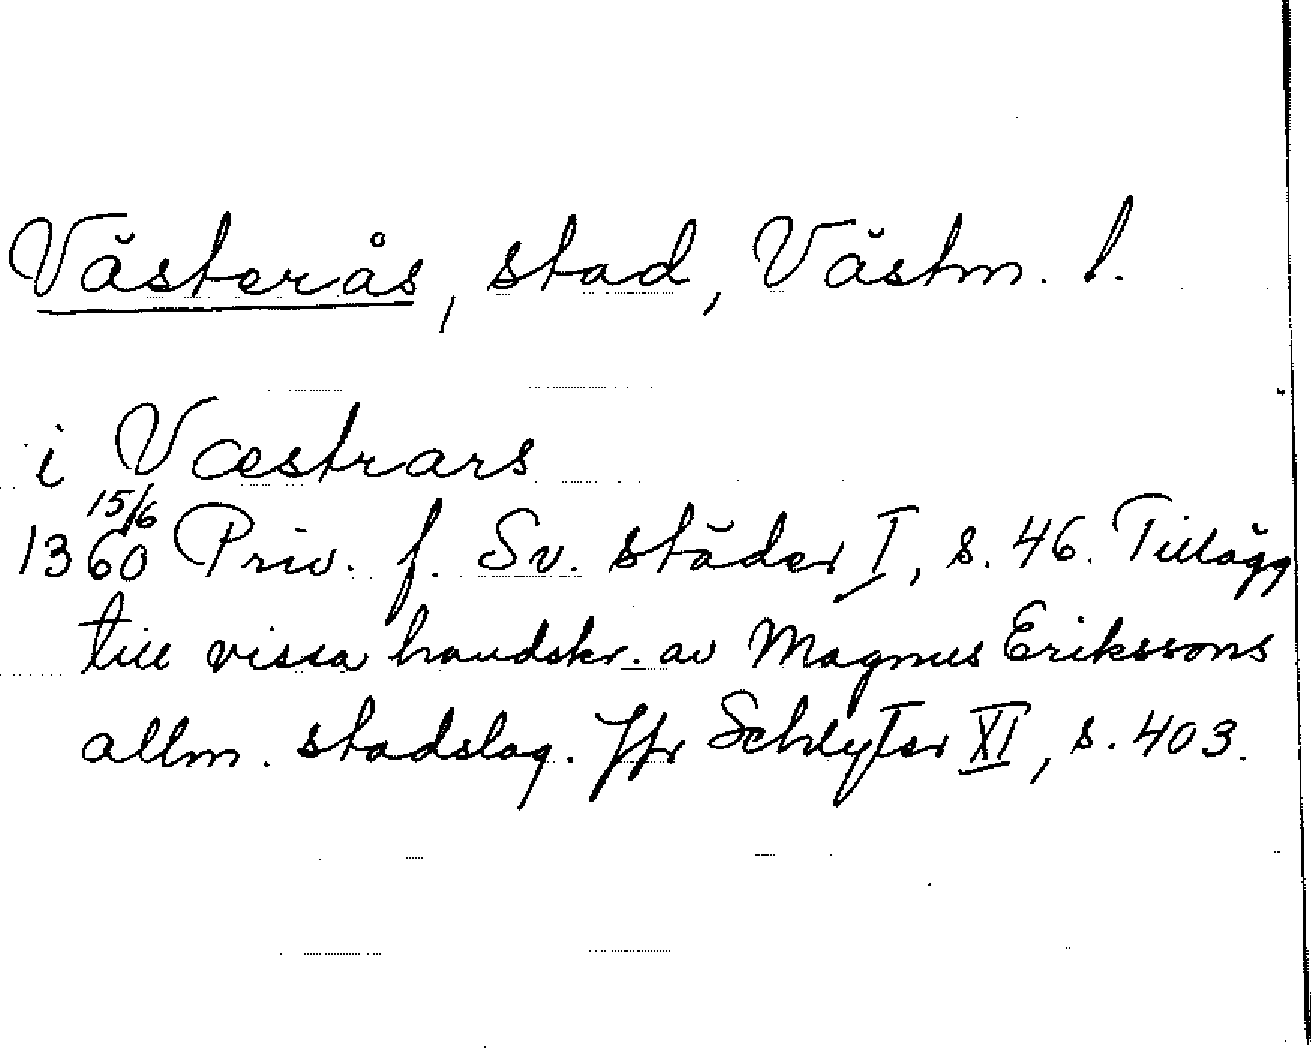 Västerås, stad, Västm. l.
i Væstrars
15/6
1360 Priv. f. Sv. städer I, s. 46. Tillägg
till vissa handskr. av Magnus Erikssons
allm. stadslag. Jfr Schlyter XI, s. 403.